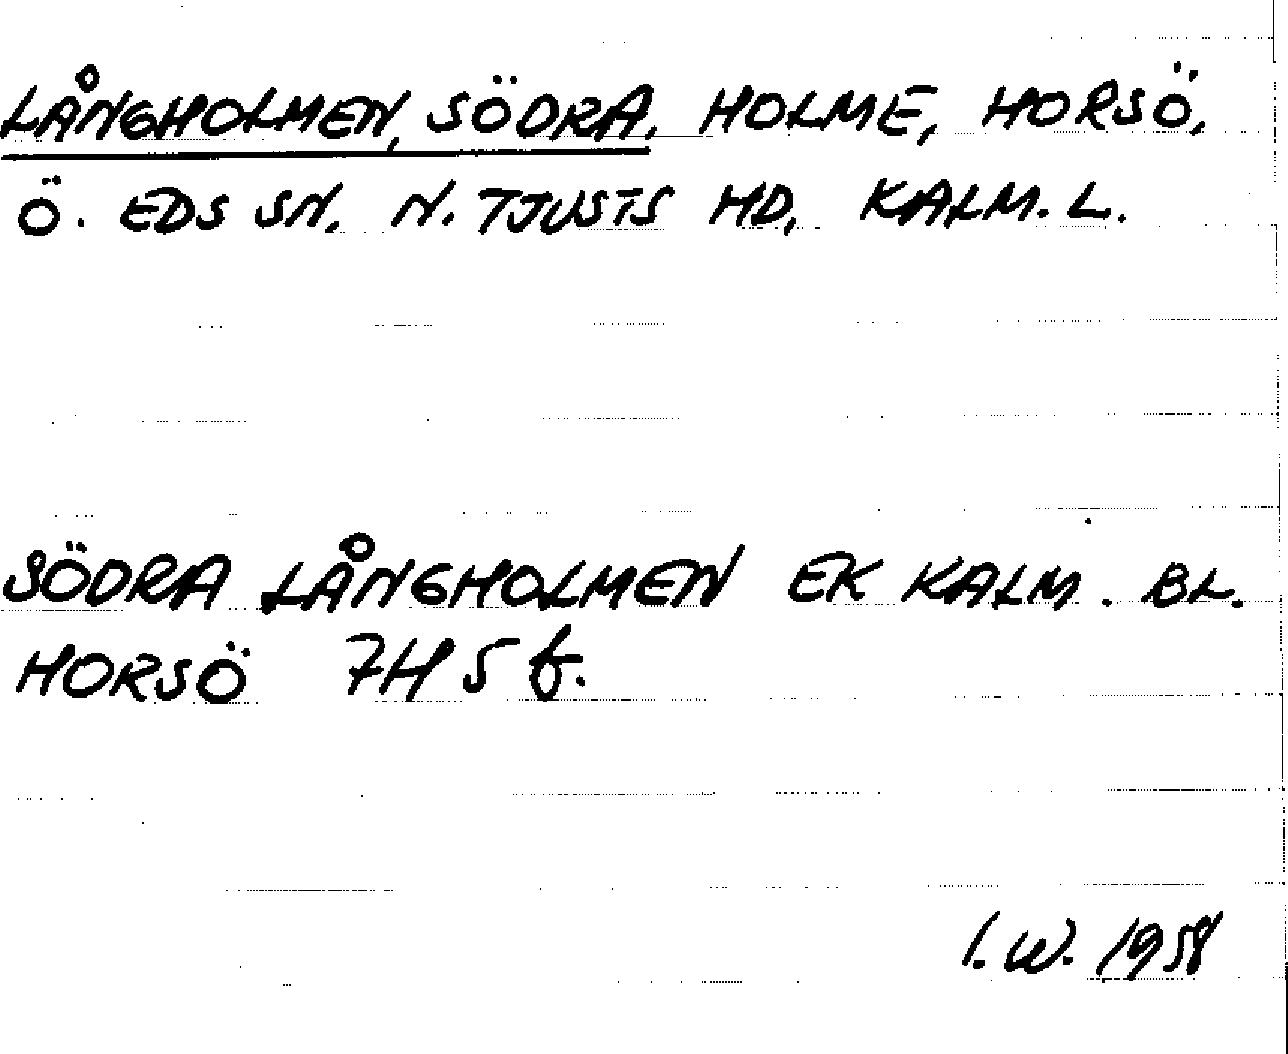 LÅNGHOLMEN, SÖDRA, HOLME, HORSÖ,
Ö. EDS SN, N. TJUSTS HD, KALM. L.
SÖDRA LÅNGHOLMEN EK KALM. BL.
HORSÖ 7H 5 f.
I. W. 1958